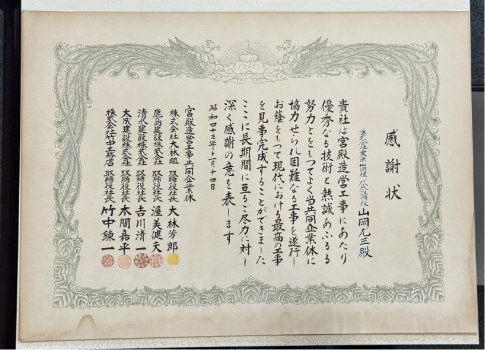 感謝状
山岡尤三殿
貴社は宮殿造営工事にあたり
優秀なる技術と熱誠あふるる
努力とをもってよく当共同企業体に
協力せられ困難なる工事を遂行し
お蔭をもって現代における最高の工事
を見事完成することができました
ここに長期間に亘るご尽力に対し
深く感謝の意を表します
昭和四十三年十一月十四日
宮殿造営工事共同企業体
株式会社大林組 取締役社長 大林芳郎
鹿島建設株式会社 取締役社長 渥美健夫
清水建設株式会社 取締役社長 吉川清一
大成建設株式会社 取締役社長 本間嘉平
株式会社竹中工務店 取締役社長 竹中錬一